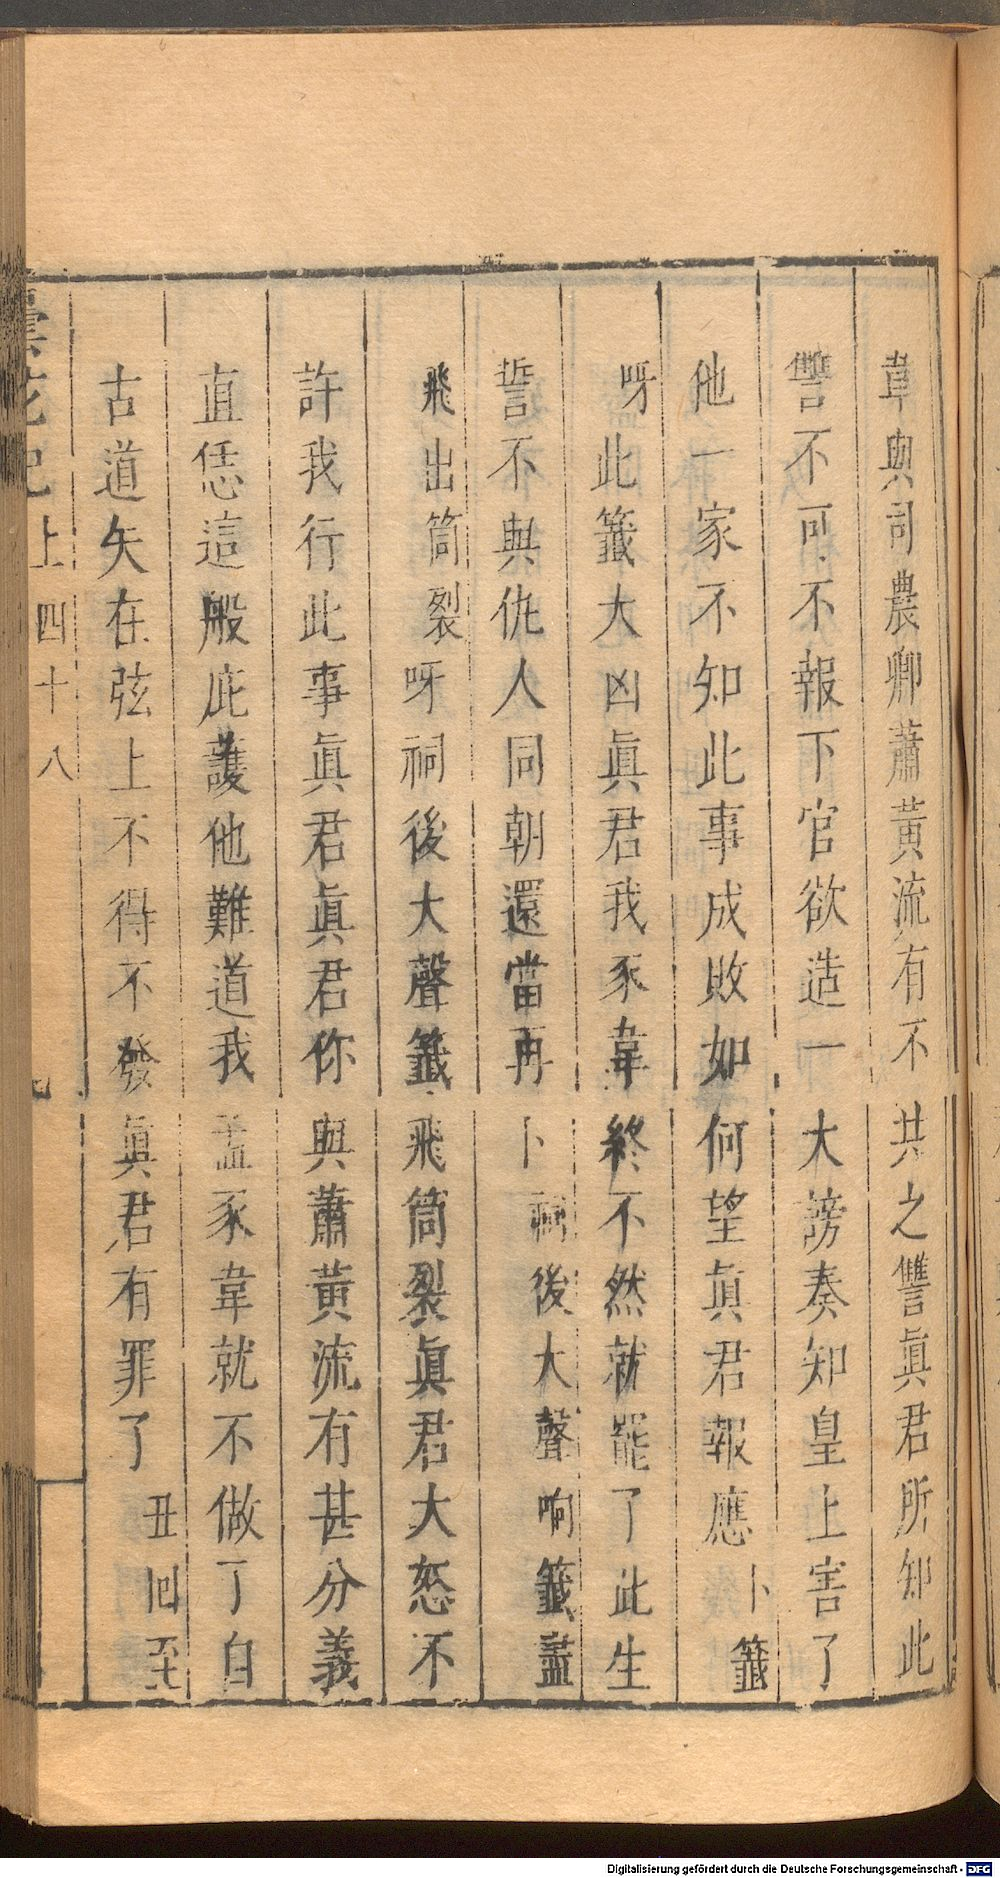 韋與司農卿蕭黃流有不共之讐眞君所知此
讐不可不報下官欲造一大謗奏知皇上害了
他一家不知此事成敗如何望眞君報應卜籤
呀此籤大凶眞君我豕韋終不然就罷了此生
誓不與仇人同朝還當再卜祠後大聲响籤盡
飛出筒裂呀祠後大聲籤飛筒裂眞君大怒不
許我行此事眞君眞君你與蕭黃流有甚分義
直恁這般庇護他難道我孟豕韋就不做了自
古道矢在弦上不得不發眞君有罪了丑囘至
曇花記上四十八
Digitalisierung gefördert durch die Deutsche Forschungsgemeinschaft - DFG